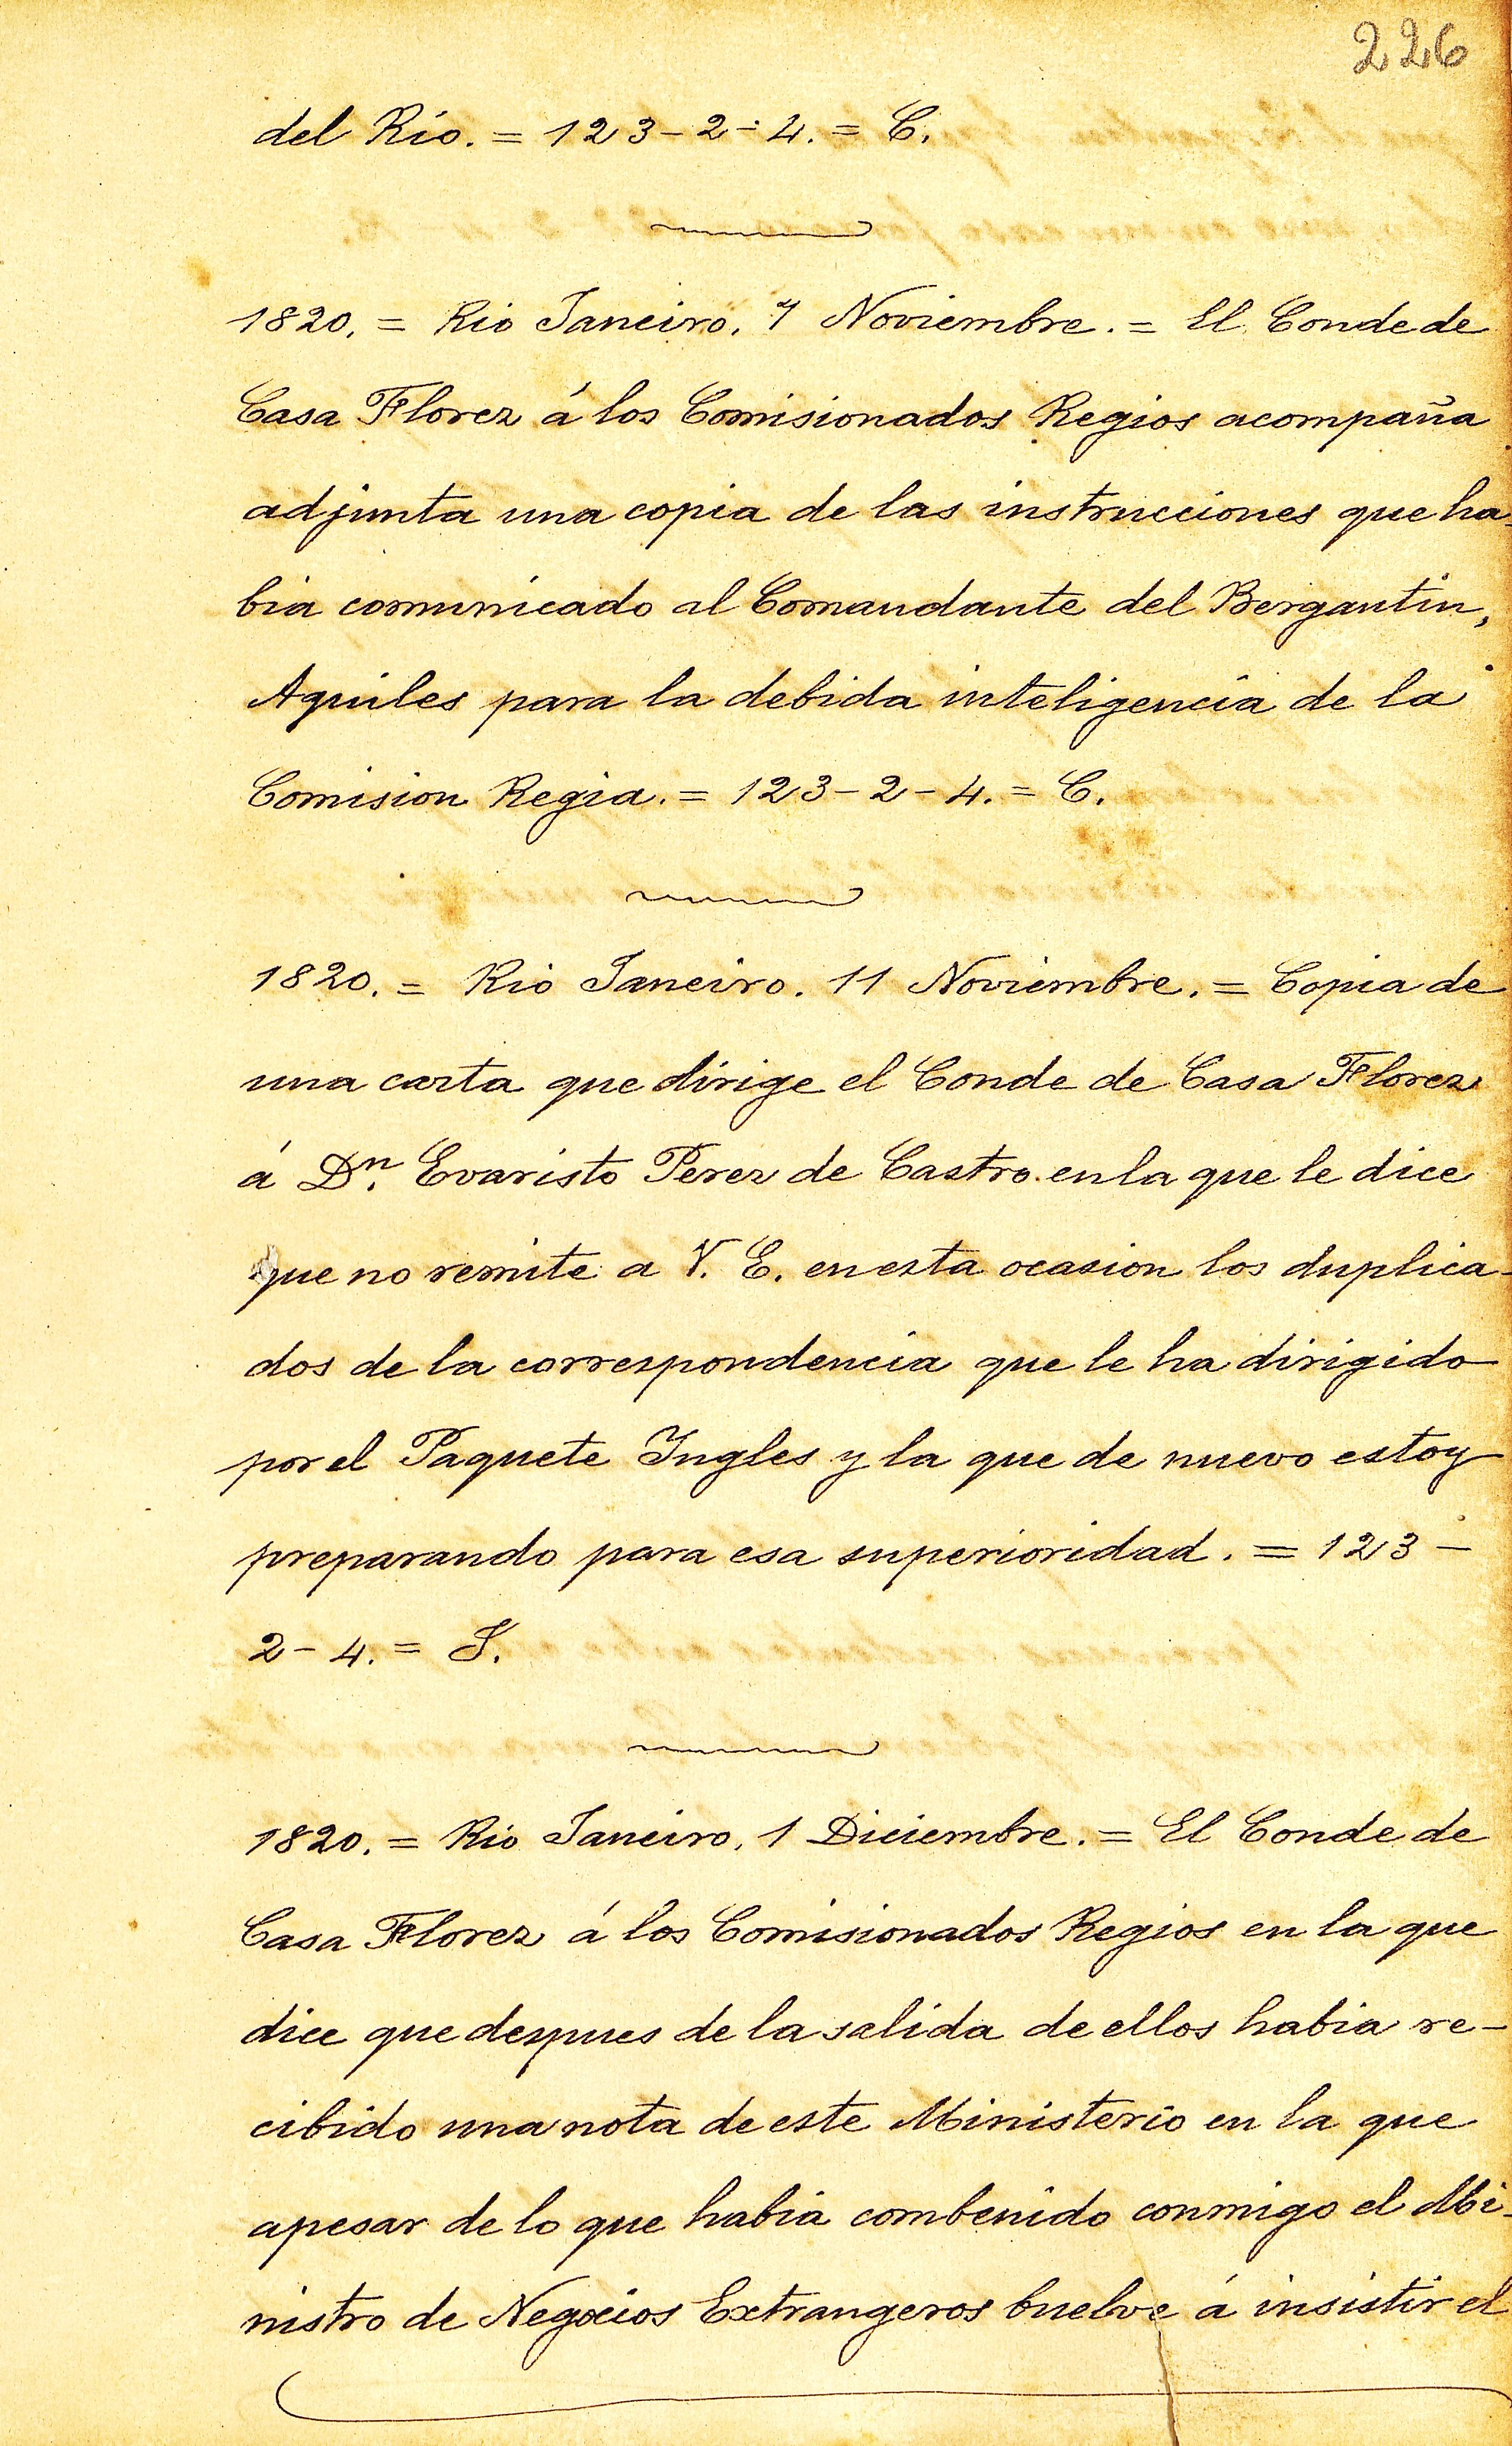 226
del Rio. = 123-2-4. = C.
1820. = Rio Janeiro. 7 Noviembre. = El Conde de
Casa Florez á los Comisionados Regios acompaña
adjunta una copia de las instrucciones que ha-
bia comunicado al Comandante del Bergantin,
Aquiles para la debida inteligencia de la
Comision Regia. = 123-2-4. = C.
1820. = Rio Janeiro. 11 Noviembre. = Copia de
una carta que dirige el Conde de Casa Florez
á Dn. Evaristo Perez de Castro en la que le dice
que no remite a V. E. en esta ocasion los duplica-
dos de la correspondencia que le ha dirigido
por el Paquete Ingles y la que de nuevo estoy
preparando para esa superioridad. = 123-
2-4. = S.
1820. = Rio Janeiro, 1 Diciembre. = El Conde de
Casa Florez á los Comisionados Regios en la que
dice que despues de la salida de ellos habia re-
cibido una nota de este Ministerio en la que
apesar de lo que habia combenido conmigo el Mi-
nistro de Negocios Extrangeros buelve á insistir el